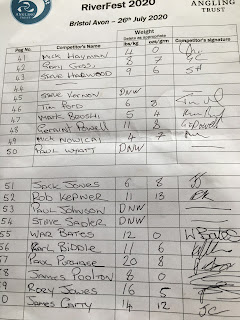 RiverFest 2020
ANGLING TRUST
Bristol Avon - 26th July 2020
Peg No. Competitor's Name Weight Competitor's signature
Delete as appropriate
lbs/kg ozs/grm
41 Mick Hayman 4 0
42 Gary Cross 8 7 GC
43 Steve Harwood 9 6 SH
44
45 Steve Vernon DNW
46 Tim Ford 6 8
47 Mark 5 4
48 Geraint Powell 11 8 GPowell
49 Nick 4 7
50 Paul Wyatt DNW
51 Jack Jones 6 8 JJ
52 Rob Kepner 11 13 RK
53 Paul Johnson DNW
54 Steve Sadler DNW
55 War Bates 12 0 W Bates
56 Karl Biddle 11 6
57 Paul Purchase 20 8
58 James Poolton 8 0
59 Rory Jones 16 5
0 James Carty 14 12 JC